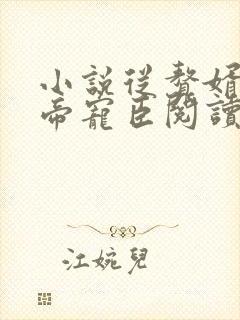 小說從贅婿
帝寵臣閱讀
江婉兒